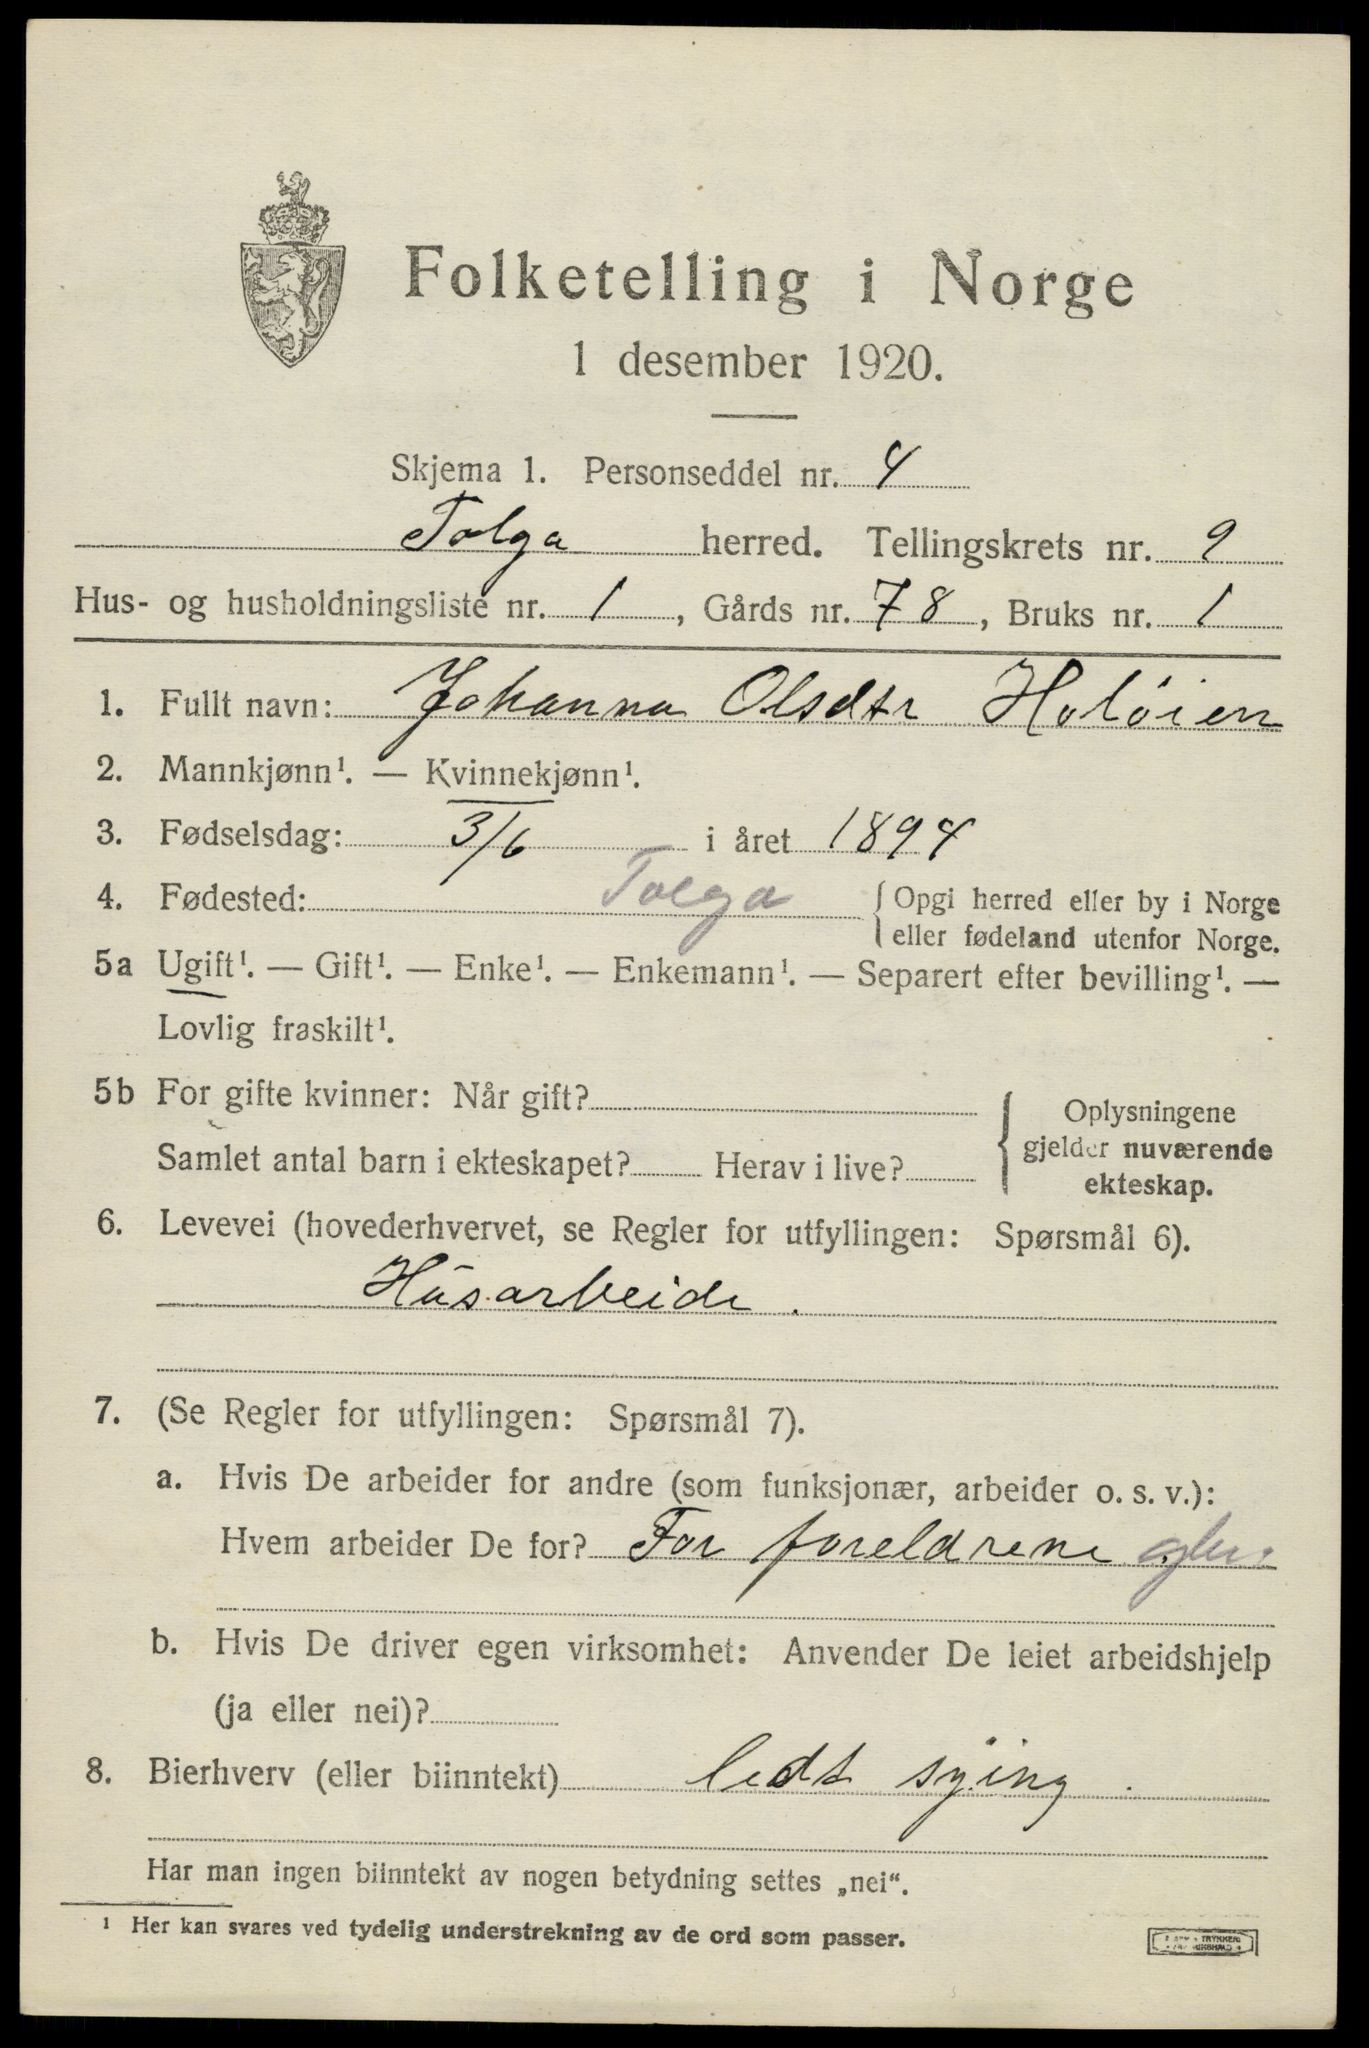 Folketelling i Norge
1 desember 1920.
Skjema 1. Personseddel nr. 4
Tolga herred. Tellingskrets nr. 9
Hus- og husholdningsliste nr. 1, Gårds nr. 78, Bruks nr. 1
1. Fullt navn: Johanna Olsdtr Holøien
2. Mannkjønn¹. — Kvinnekjønn¹.
3. Fødselsdag: 3/6 i året 1894
4. Fødested: Tolga { Opgi herred eller by i Norge
eller fødeland utenfor Norge.
5a Ugift¹. — Gift¹. — Enke¹. — Enkemann¹. — Separert efter bevilling¹. —
Lovlig fraskilt¹.
5b For gifte kvinner: Når gift?
Samlet antal barn i ekteskapet? Herav i live?
{ Oplysningene
gjelder nuværende
ekteskap.
6. Levevei (hovederhvervet, se Regler for utfyllingen: Spørsmål 6).
Husarbeide.
7. (Se Regler for utfyllingen: Spørsmål 7).
a. Hvis De arbeider for andre (som funksjonær, arbeider o. s. v.):
Hvem arbeider De for? For foreldrene
b. Hvis De driver egen virksomhet: Anvender De leiet arbeidshjelp
(ja eller nei)?
8. Bierhverv (eller biinntekt) ledt sying.
Har man ingen biinntekt av nogen betydning settes „nei“.
¹ Her kan svares ved tydelig understrekning av de ord som passer.